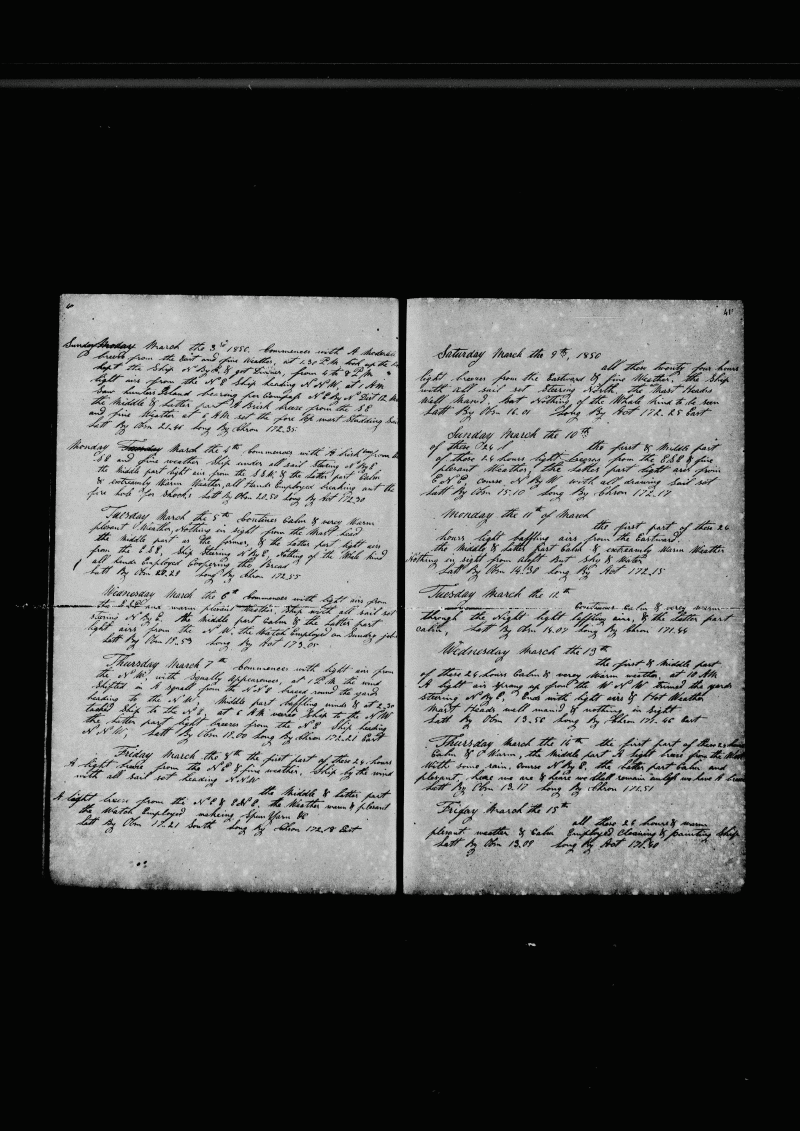 Sunday Monday March the 3rd 1850. Commences with A moderate
breeze from the East and fine Weather, at 1.30 P.M. took up the
kept the Ship N By W & got Dinner, from 4 to 8 P.M.
light airs from the N E Ship heading N N W, at 1 A M
Saw hunters Island bearing por Compass N E By N Dist 12 M
the Middle & Latter part A Brisk breeze from the S E
and fine Weather at 6 A M set the fore top mast Studding Sail
Latt By Obn 21.46 Long By Chron 172.35
Monday Tuesday March the 4th Commences with A brisk
S E and fine weather Ship under all sail Stering N By E
the Middle part light airs from the S S W. & the Latter part Calm
& extremely Warm Weather, all hands Employed breaking out the
fore hole for Shooks Latt By Obn 20.50 Long By Act 172.30
Tuesday March the 5th Continues Calm & verry Warm
plesent Weather, Nothing in sight from the Mast head
the Middle part as the former, & the Latter part light airs
from the E S E, Ship Steering N By E, Nothing of the Whale kind
all hands Employed Coopering the Bread
Latt By Obn 20.20 Long By Chron 172.55
Wednesday March the 6th Commences with light airs from
the E S E and warm plesent Weather, Ship with all sail set
stering N By E. the Middle part Calm & the Latter part
light airs from the N W, the Watch Employed on Sundry jobs
Latt By Obn 19.53 Long By Act 173.05
Thursday March 7th Commences with light air from
the N W, with Squally Appearances, at 1 P.M. the wind
Shifted in A squall from the N N E braced round the yards
heading to the N W. Middle part Baffling winds & at 2.30
tacked Ship to the N E, at 6 A M wore Ship to the N W
the Latter part light breezes from the N E Ship heading
N N W, Latt By Obn 18.00 Long By Chron 172.21 East
Friday March the 8th the first part of these 24 hours
A light breeze from the N E & fine weather. Ship by the wind
with all sail set heading N N W
the Middle & Latter part
A light breeze from the N E & E N E, the Weather warm & plesent
the Watch Employed makeing Spun Yarn &c
Latt By Obn 17.21 South Long By Chron 172.18 East
41
Saturday March the 9th, 1850
all these twenty four hours
light breezes from the Eastward & fine Weather, the Ship
with all sail set Steering North, the Mast Heads
Well Mand, but Nothing of the Whale kind to be seen
Latt By Obn 16.01 Long By Act 172.25 East
Sunday March the 10th
of these 24 the first & Middle part
of those 24 hours light breezes from the E S E & fine
plesent Weather, the Latter part light airs from
E N E course N By W with all drawing sail set
Latt By Obn 15.10 Long By Chron 172.17
Monday the 11th of March
the first part of these 24
hours light baffling airs from the Eastward
the Middle & Latter part Calm & extreamly Warm Weather
Nothing in sight from Aloft But Sky & Water
Latt By Obn 14.30 Long By Act 172.15
Tuesday March the 12th
Continues Calm & verry warm
through the Night light baffling airs, & the Latter part
calm, Latt By Obn 14.07 Long By Chron 171.44
Wednesday March the 13th
the first & Middle part
of these 24 hours Calm & verry Warm weather, at 10 A M
A light air sprang up from the W N W trimed the yards
steering N By E, Ends with light airs & Hot Weather
Mast Heads well mand & nothing in sight
Latt By Obn 13.50 Long By Chron 171.40 East
Thursday March the 14th the first part of these 24 hours
Calm & Warm, the Middle part A light breeze from the West
With some rain, course N By E, the Latter part Calm and
plesent, here we are & here we shall remain unless we have A breeze
Latt By Obn 13.17 Long By Chron 171.51
Friday March the 15th
all these 24 hours & warm
plesent weather & Calm Employed Cleaning & painting Ship
Latt By Obn 13.09 Long By Act 171.40